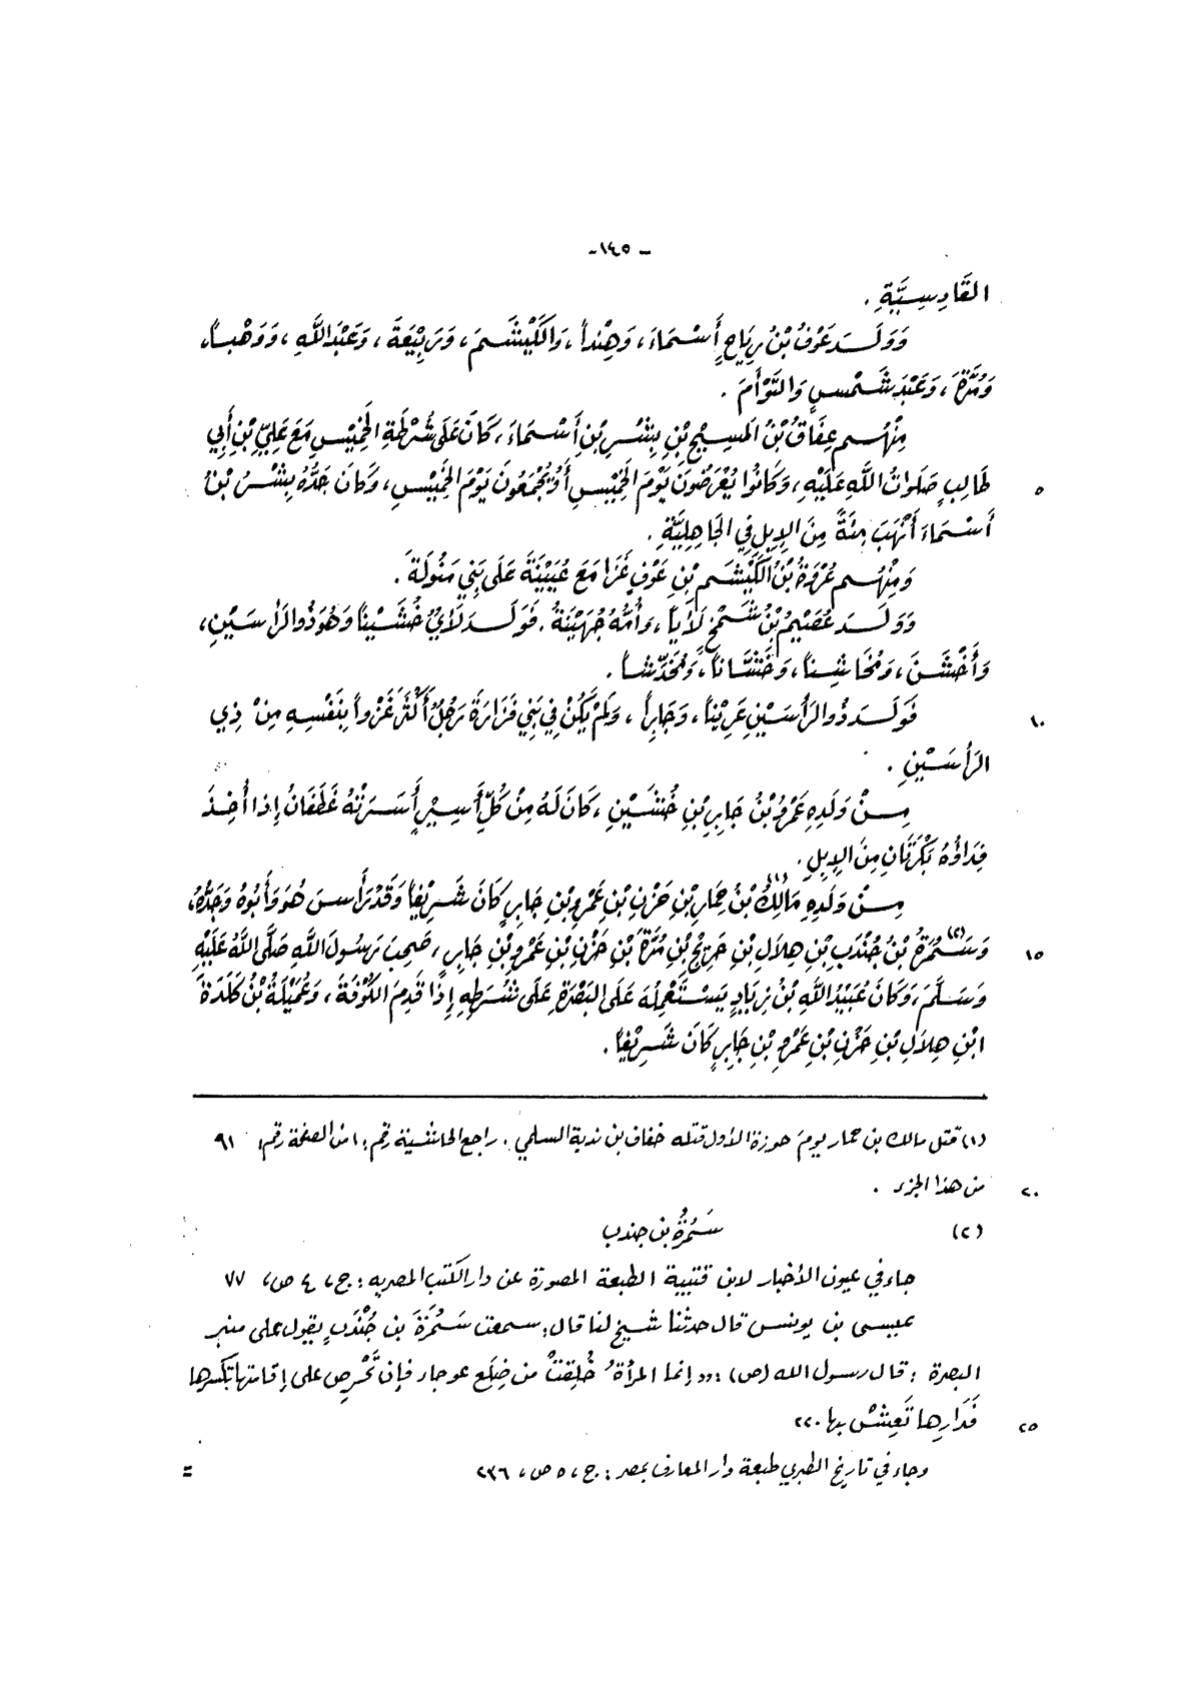 - ١٤٥ -
القَادِسِيَّةِ .
وَوَلَــدَ عَوْفُ بْنُ رِيَاحٍ أَسْـمَاءَ ، وَهِنْداً ، وَالكَيْشَـمَ ، وَرَبِيْعَةَ ، وَعَبْدَ اللَّهِ ، وَوَهْبـاً ،
وَمُرَّةَ ، وَعَبْدَ شَـمْسٍ وَالتَّوْأَمَ .
مِنْهُـم عِفَاقُ بْنُ المَسِـيْحِ بْنِ بِشْـرِ بْنِ أَسْـمَاءَ ، كَانَ عَلَى شُرْطَةِ الخَمِيْسِ مَعَ عَلِيِّ بْنِ أَبِي
٥ طَالِبٍ صَلَوَاتُ اللَّهِ عَلَيْهِ ، وَكَانُوا يُعْرَضُونَ يَوْمَ الخَمِيْسِ أَوْ يُجْمَعُونَ يَوْمَ الخَمِيْسِ ، وَكَانَ جَدُّهُ بِشْـرُ بْنُ
أَسْـمَاءَ أَنْهَبَ مِئَةً مِنَ الإِبِلِ فِي الجَاهِلِيَّةِ .
وَمِنْهُـم عُرْوَةُ بْنُ الكَيْشَـمِ بْنِ عَوْفٍ غَزَا مَعَ عُيَيْنَةَ عَلَى بَنِي مَنُولَةَ .
وَوَلَــدَ عُصَيْمُ بْنُ شَـمْخٍ لَأْياً ، وَأُمُّهُ جُهَيْنَةُ . فَوَلَــدَ لَأْيٌ خُشَـيْناً وَهُوَ ذُو الرَأْسَـيْنِ ،
وَأَخْشَـنَ ، وَمُخَاشِـناً ، وَخَشَّـاناً ، وَمُخَدِّشـاً .
١٠ فَوَلَـدَ ذُو الرَأْسَـيْنِ عَرِيْناً ، وَجَابِراً ، وَلَمْ يَكُنْ فِي بَنِي فَزَارَةَ رَجُلٌ أَكْثَرَ غَزْواً بِنَفْسِـهِ مِنْ ذِي
الرَأْسَـيْنِ .
مِـنْ وَلَدِهِ عَمْرُو بْنُ جَابِرِ بْنِ خُشَـيْنٍ ، كَانَ لَهُ مِنْ كُلِّ أَسِـيْرٍ أَسَـرَتْهُ غَطَفَانُ إِذا أُخِـذَ
فِدَاؤُهُ بَكْرَتَانِ مِنَ الإِبِلِ .
مِـنْ وَلَدِهِ مَالِكُ (١) بْنُ حِمَارِ بْنِ حَزْنِ بْنِ عَمْرِو بْنِ جَابِرٍ كَانَ شَـرِيْفاً وَقَدْ رَأَسـسَ هُوَ وَأَبُوهُ وَجَدُّهُ ،
١٥ وَسَـمُرَةُ (٢) بْنُ جُنْدَبِ بْنِ هِلاَلِ بْنِ حَرِيْجِ بْنِ مُرَّةَ بْنِ حَزْنِ بْنِ عَمْرِو بْنِ جَابِرٍ ، صَحِبَ رَسُولَ اللَّهِ صَلَّى اللَّهُ عَلَيْهِ
وَسَـلَّمَ ، وَكَانَ عُبَيْدُ اللَّهِ بْنُ زِيَادٍ يَسْـتَعْمِلُهُ عَلَى البَصْرَةِ عَلَى شُـرَطِهِ إِذَا قَدِمَ الكُوْفَةَ ، وَعُمَيْلَةُ بْنُ كَلَدَةَ
ابْنِ هِلاَلِ بْنِ حَزْنِ بْنِ عَمْرِو بْنِ جَابِرٍ كَانَ شَـرِيْفاً .
(١) قتل مالك بن حمار يومَ حوزة الأول قتله خفاف بن ندبة السلمي . راجع الحاشـية رقم : ١ من الصفحة رقم : ٩١
٢٠ من هذا الجزء .
(٢) سَـمُرَةُ بن جندب
جاء في عيون الأخبار لابن قتيبة الطبعة المصورة عن دار الكتب المصريه : ج ، ٤ ص ، ٧٧
عيسـى بن يونـس قال حدثنا شـيخ لنا قال : سـمعت سَـمُرَةَ بن جُنْدَبٍ يقول على منبر
البصرة : قال رسـول الله (ص) : ,, إنما المرأة خُلِقتْ من ضِلَعٍ عوجاء فإن تَحْرِص على إقامتها تكسرها
٢٥ فَدَارِها تَعِشْ بها . ،،
وجاء في تاريخ الطبري طبعة دار المعارف بمصر : ج ، ٥ ص ، ٢٣٦ =